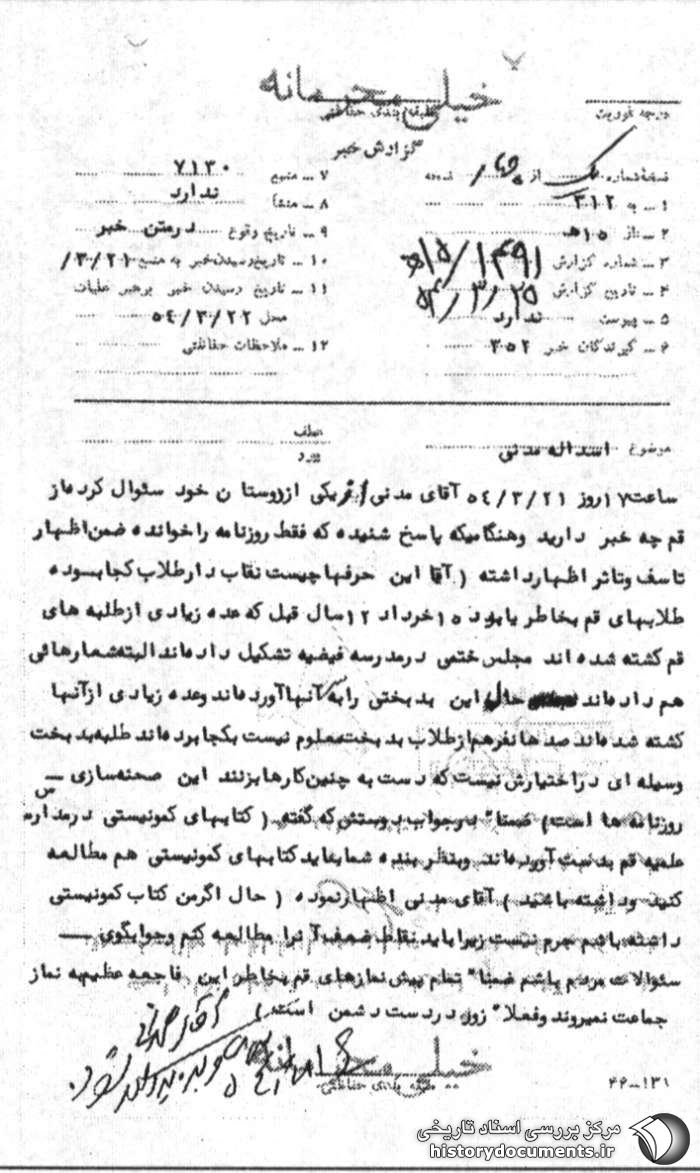 خیلی محرمانه
طبقه بندی حفاظتی
درجه فوریت
گزارش خبر
نسخه شماره یک از نسخه
۱ ــ به ۳۱۲
۲ ــ از ۱۵ هـ
۳ ــ شماره گزارش ۱۰۴۹۱/ ۱۵هـ
۴ ــ تاریخ گزارش ۵۴/۳/۲۵
۵ ــ پیوست ندارد
۶ ــ گیرندگان خبر ۳۵۲
۷ ــ منبع ۷۱۳۰
۸ ــ منشأ ندارد
۹ ــ تاریخ وقوع درمتن خبر
۱۰ ــ تاریخ رسیدن خبر به منبع ۳/۲۱/
۱۱ ــ تاریخ رسیدن خبر برهبر عملیات
محل ۵۴/۳/۲۲
۱۲ ــ ملاحظات حفاظتی
موضوع اسداله مدنی
عطف
پیرو
ساعت۱۷روز ۵۴/۳/۲۱ آقای مدنی از دوستان خود سئوال کرده‌از
قم چه خبر دارید وهنگامیکه پاسخ شنیده که فقط روزنامه را خوانده ضمن‌اظهار
تاسف وتاثر اظهارداشته ( آقا این حرفها چیست نقاب دارطلاب کجابوده
طلابهای قم بخاطر یابود ۱۵خرداد ۱۲سال قبل که عده زیادی ازطلبه های
قم کشته شده اند مجلس ختمی درمدرسه فیضیه تشکیل داده‌اندالبته‌شعارهائی
هم داده‌اند حال این بدبختی رابه آنهاآورده‌اند وعده زیادی ازآنها
کشته شده‌اند صدهانفرهم‌ازطلاب بدبخت‌معلوم نیست بکجابرده‌اند طلبه‌بدبخت
وسیله ای دراختیارش نیست که دست به چنین‌کارهابزنند این صحنه‌سازی ــ
روزنامه ها است) ضمنا" درجواب دوستش که گفته ( کتابهای کمونیستی درمدارس
علمیه قم بدست آورده‌اند وبنظر بنده شمابایدکتابهای کمونیستی هم مطالعه
کنید وداشته باشید ) آقای مدنی اظهارنموده ( حال اگرمن کتاب کمونیستی
داشته باشم جرم نیست زیرا باید نقاط ضعف آنرا مطالعه کنم وجوابگوی ــ
سئوالات مردم باشم ضمنا" تمام پیش نمازهای قم بخاطر این فاجعه عظیم‌به نماز
جماعت نمیروند وفعلا" زور دردست دشمن است )
خیلی محرمانه
طبقه بندی حفاظتی
۴۴-۱۳۱
مرکز بررسی اسناد تاریخی
historydocuments.ir